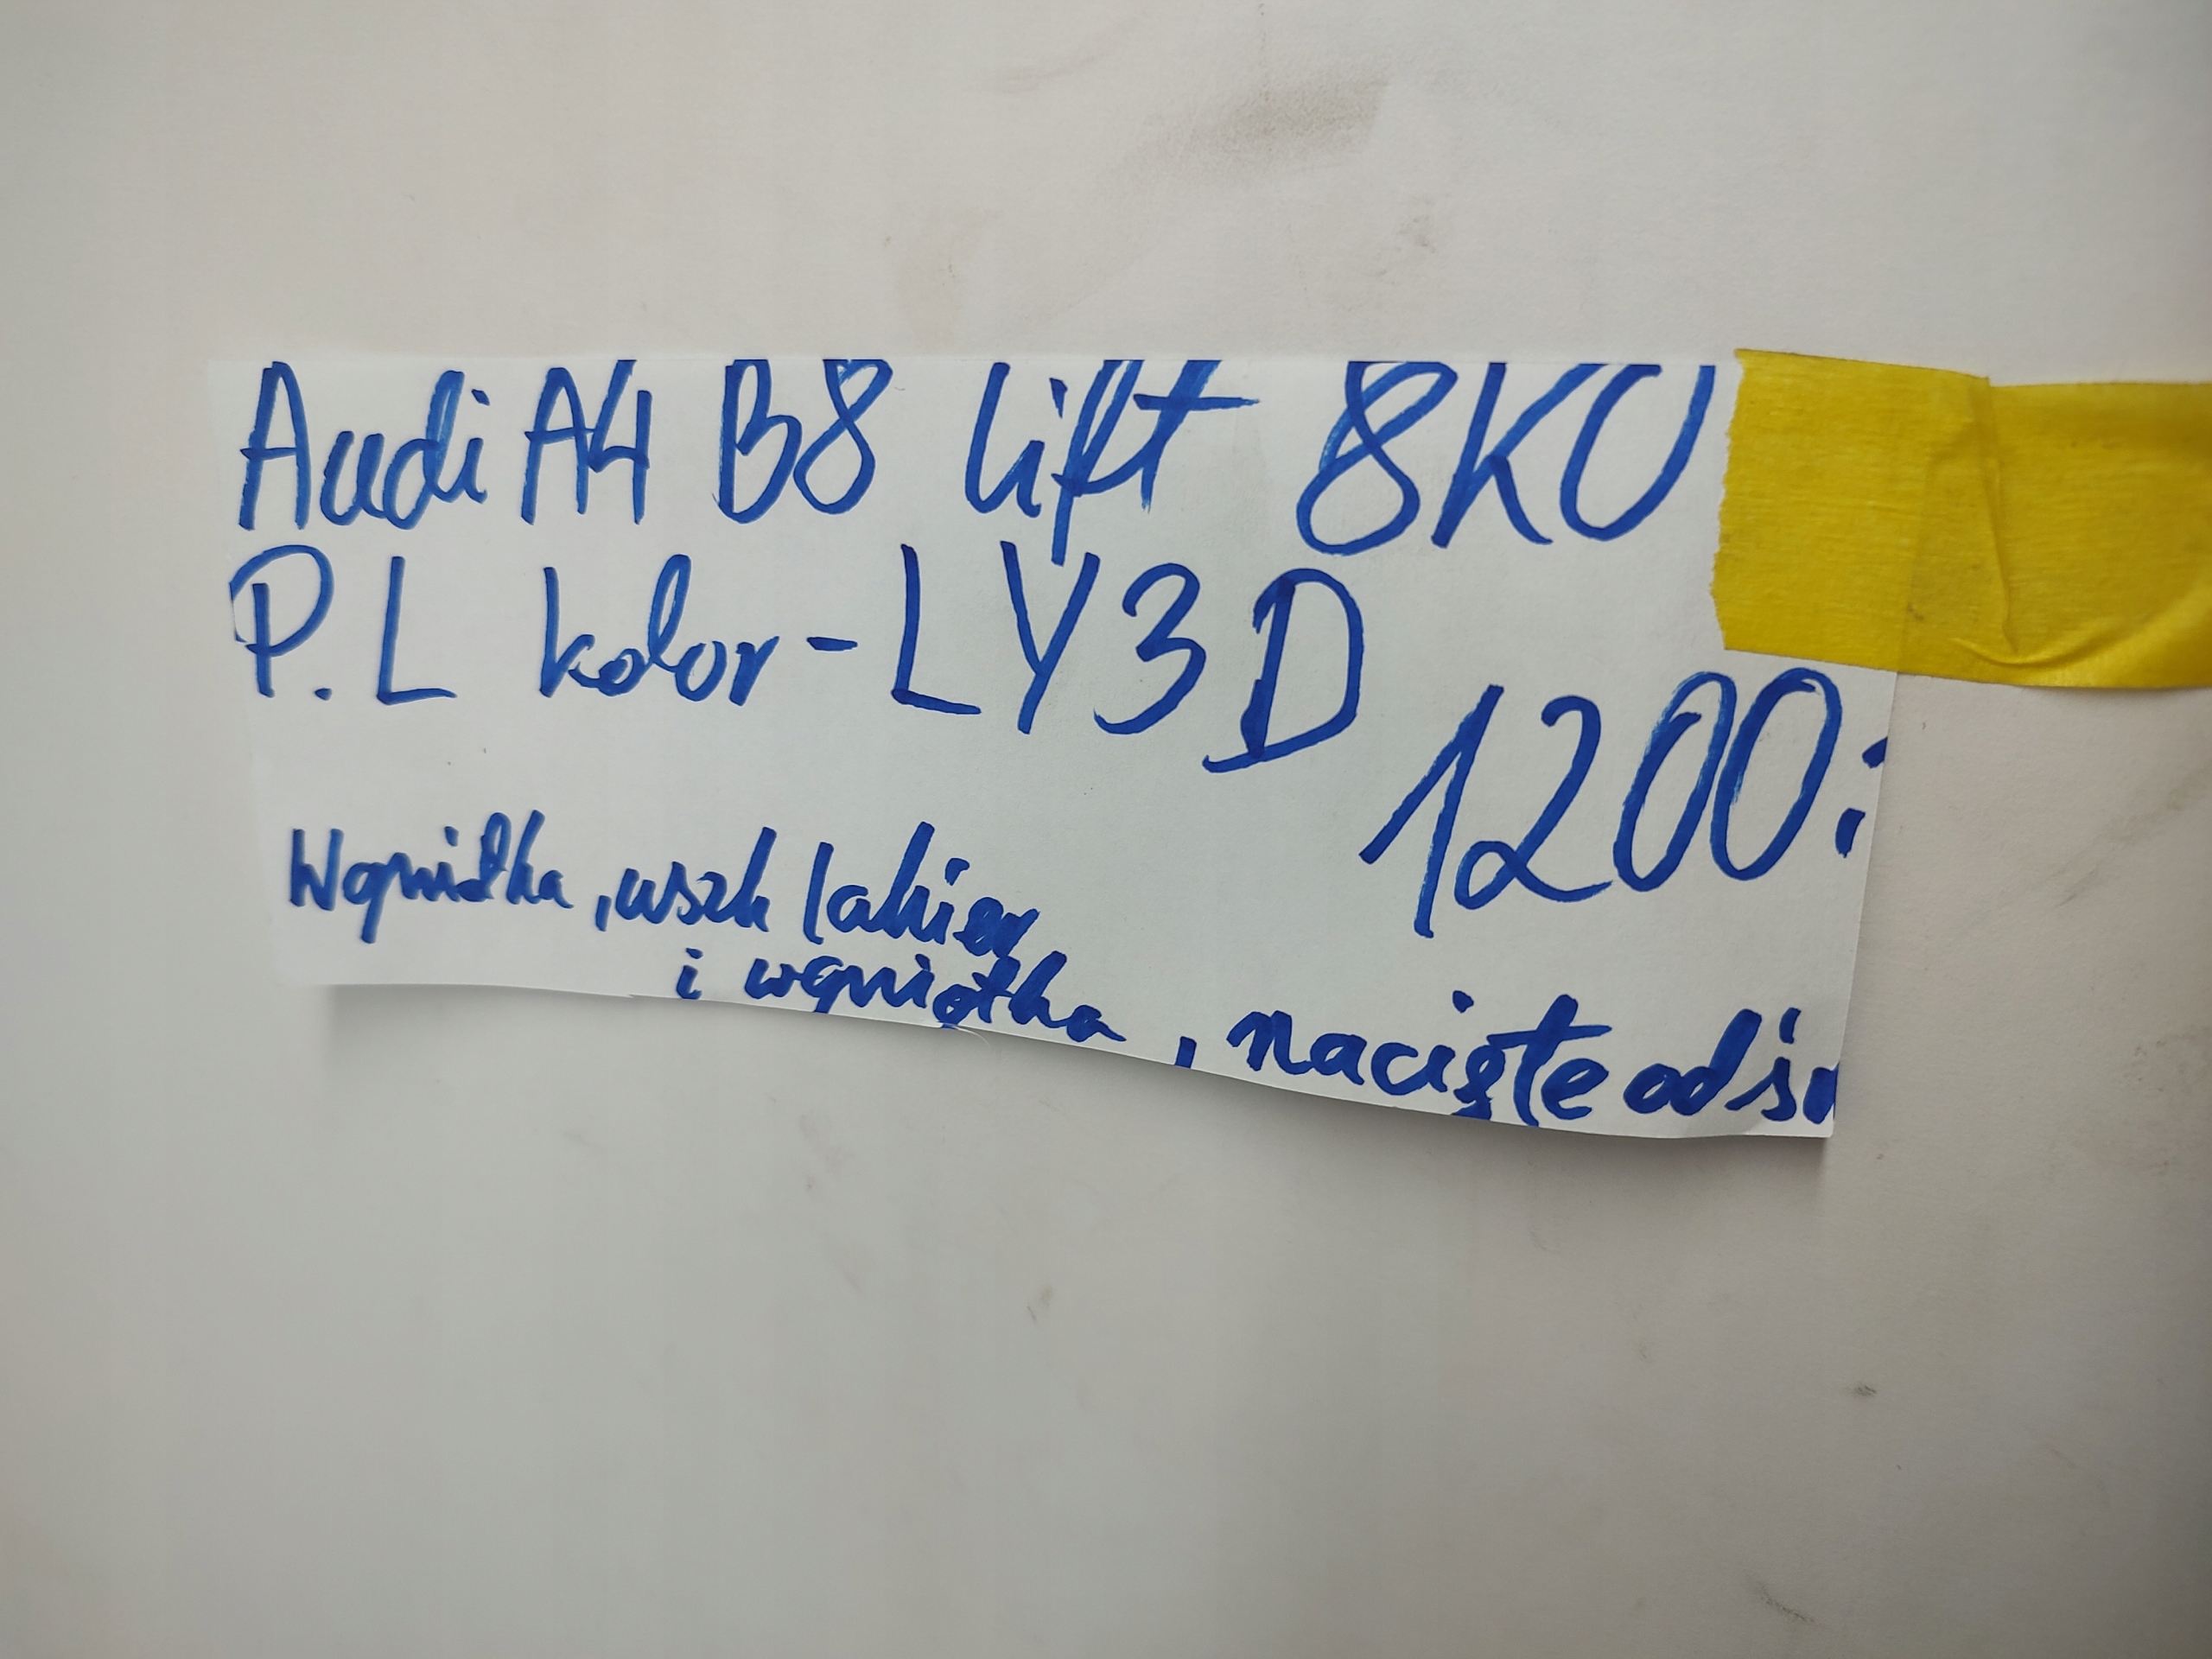 Audi A4 B8 lift 8KU
P.L kolor-LY3D
1200:
Wgniotka, uszk lakier
i wgniotka, nacięte od śr